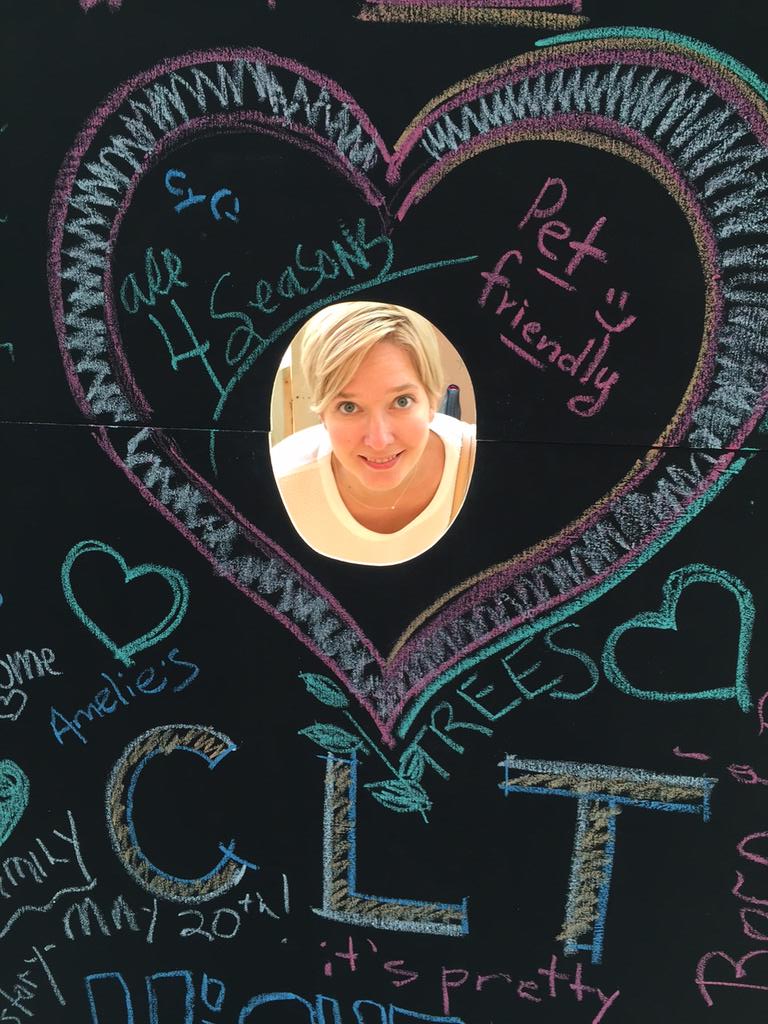 all
4 Seasons
Pet
friendly
TREES
Amelie's
CLT
MAY 20th!
it's pretty
Born